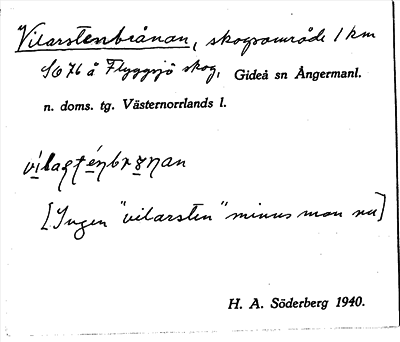 Vilarstenbrånan, skogsområde 1 km
SO å Flyggsjö skog, Gideå sn Ångermanl.
n. doms. tg. Västernorrlands l.
[Ingen "vilarsten" minns man nu]
H. A. Söderberg 1940.